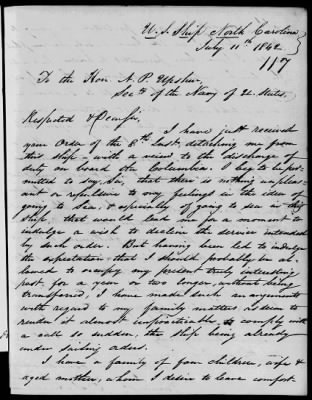 U. S. Ship North Carolina
July 11th 1842
117
To the Hon. A. P. Upshur,
Secy of the Navy of U. States.
Respected & Dear Sir,
I have just received
your Order of the 8th Inst. detaching me from
this ship, with a view to the discharge of
duty on board the Columbia. I beg to be per-
mitted to say, Sir, that there is nothing unpleas-
ant or repulsive to my feelings in the idea of
going to sea, & especially of going to sea in that
ship that would lead me for a moment to
indulge a wish to decline the service intended
by such order. But having been led to indulge
the expectation that I should probably be al-
lowed to occupy my present truly interesting
post, for a year or two longer, without being
transferred, I have made such arrangements
with regard to my family matters as to
render it almost impossible to comply with
a call so sudden, the ship being already
under sailing orders.
I have a family of four children, wife &
aged mother, whom I desire to leave comfort-